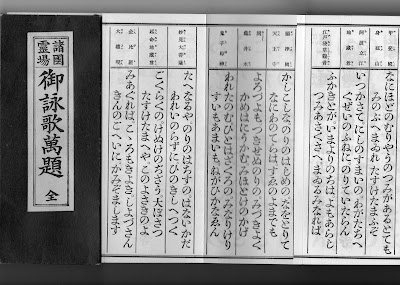 諸國靈場
御詠歌萬題
全
なにほどのむりやうのつみがあるとても
みのぶへまゐれたすけたまふぞ
いつかさてにしのすまいのわがたちへ
ぐぜいのふねにのりていたらん
ふかきとがいまよりのちはよもあらじ
つみあさくさへまゐるみなれば
天王寺
かしこしなのりのはじめのなをとりて
なにわのてらはすゑのよまでも
龜井水
よろづよもつきせぬのりのみづきよく
かめはにうかむみほとけのかげ
鬼子母神
われたのむひとはざくろのみなりけり
すいもあまいもねがひかなゑん
妙見大菩薩
たへなるやのりのはちすのはないかだ
われいのらずにひのきしへつく
延命地藏尊
ごくらくのげぬけのぢざう大ぼさつ
たすけたまへやこのよさきのよ
大權現
みあぐればこゝろもきよきしよづさん
きんのごへいにかみぞまします